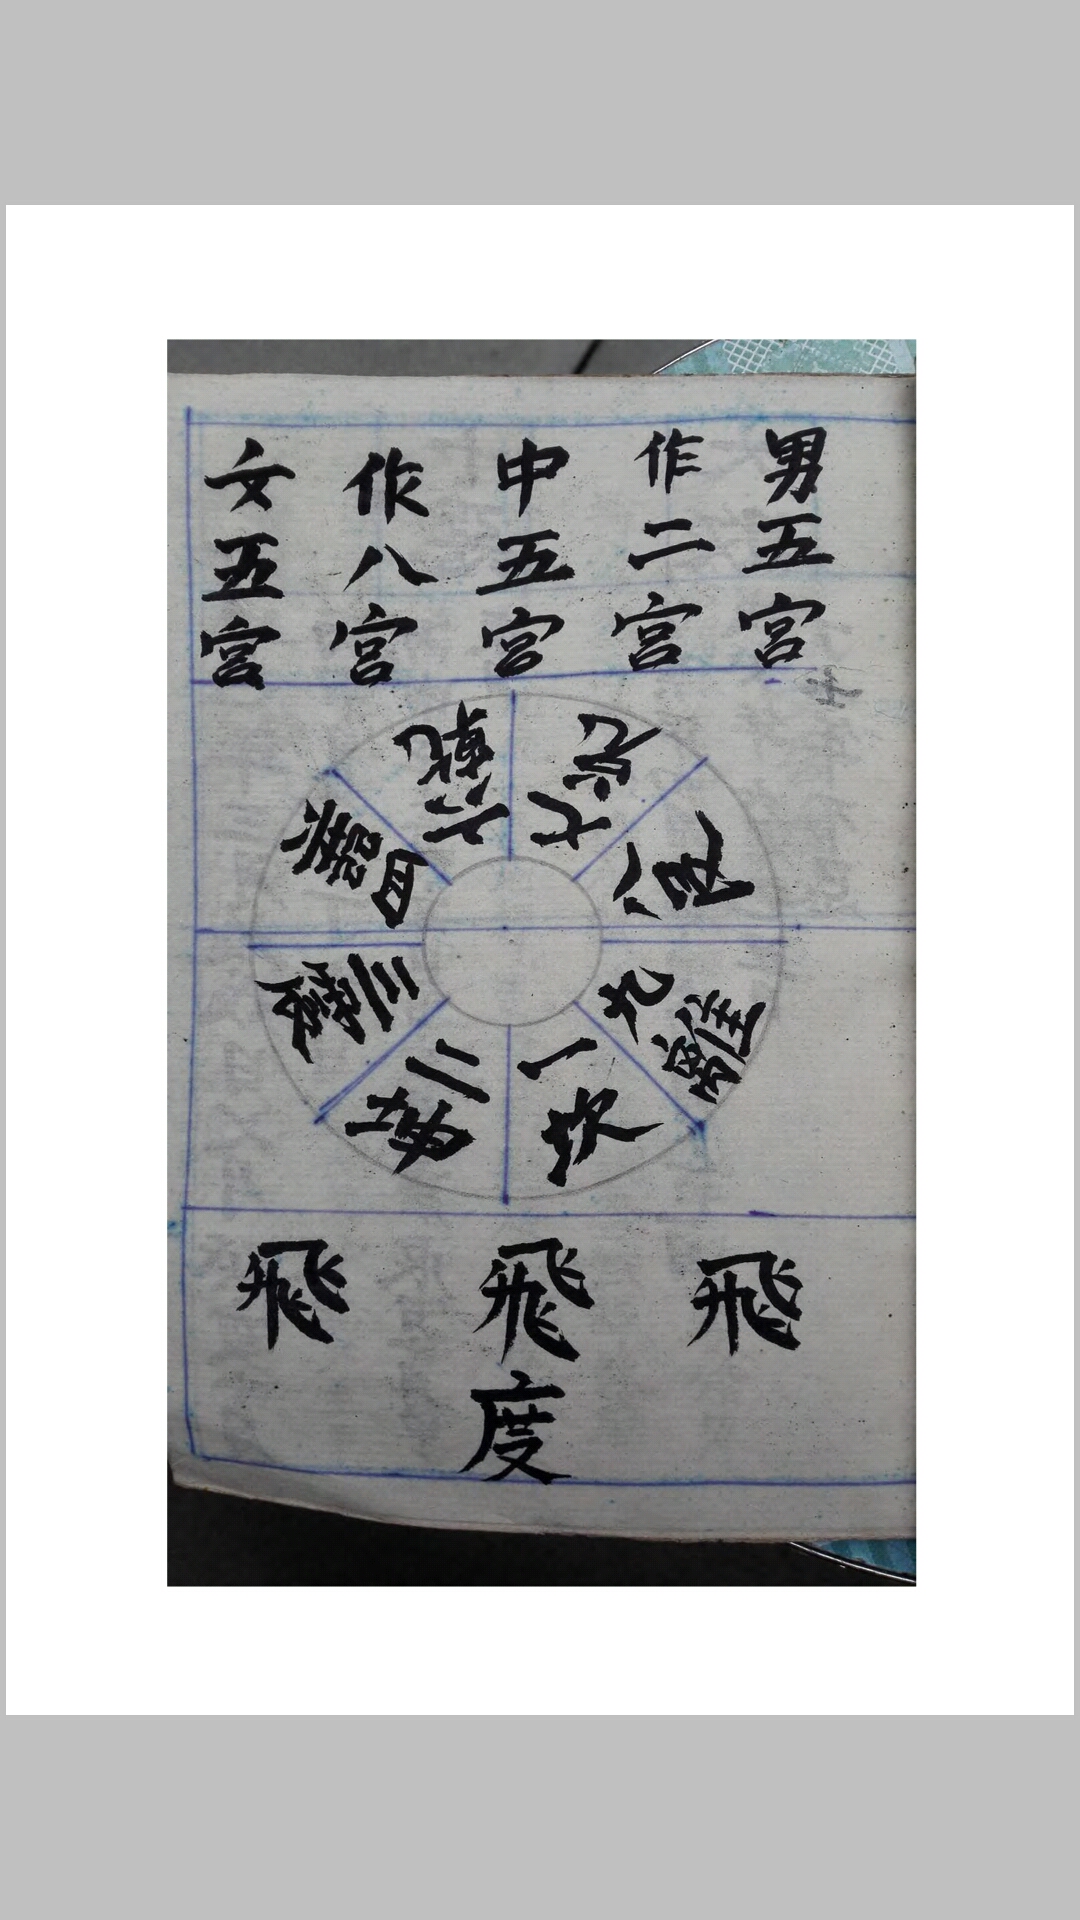 男五宮
作二宮
中五宮
作八宮
女五宮
一坎
二坤
三震
四巽
六乾
七兌
八艮
九離
飛
飛度
飛